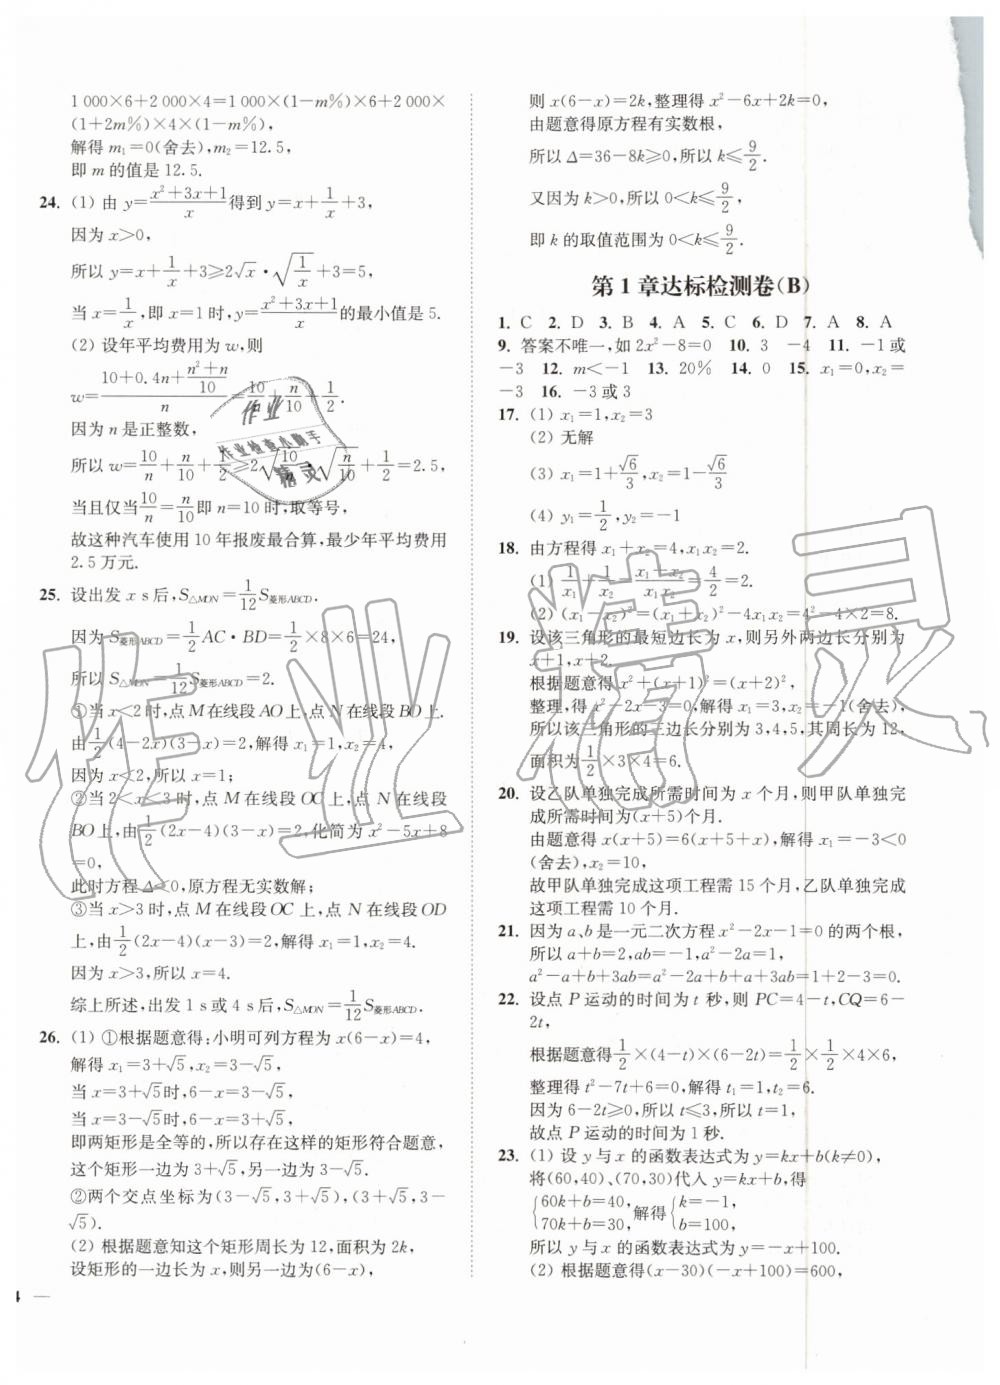 1 000×6+2 000×4=1 000×(1-m%)×6+2 000×
(1+2m%)×4×(1-m%),
解得 m₁=0(舍去),m₂=12.5,
即 m 的值是 12.5.
24. (1) 由 y=(x²+3x+1)/x 得到 y=x+1/x+3,
因为 x>0,
所以 y=x+1/x+3≥2√x·√(1/x)+3=5,
当 x=1/x,即 x=1 时,y=(x²+3x+1)/x 的最小值是 5.
(2) 设年平均费用为 w,则
w=(10+0.4n+(n²+n)/10)/n=10/n+n/10+1/2.
因为 n 是正整数,
所以 w=10/n+n/10+1/2≥2√(10/n)·√(n/10)+1/2=2.5,
当且仅当 10/n=n/10 即 n=10 时,取等号,
故这种汽车使用 10 年报废最合算,最少年平均费用
2.5 万元.
25. 设出发 x s 后,S△MON=1/12 S菱形ABCD.
因为 S菱形ABCD=1/2 AC·BD=1/2×8×6=24,
所以 S△MON=1/12 S菱形ABCD=2.
①当 x<2 时,点 M 在线段 AO 上,点 N 在线段 BO 上.
由 1/2(4-2x)(3-x)=2,解得 x₁=1,x₂=4.
因为 x<2,所以 x=1;
②当 2<x<3 时,点 M 在线段 OC 上,点 N 在线段
BO 上,由 1/2(2x-4)(3-x)=2,化简为 x²-5x+8
=0,
此时方程 Δ<0,原方程无实数解;
③当 x>3 时,点 M 在线段 OC 上,点 N 在线段 OD
上,由 1/2(2x-4)(x-3)=2,解得 x₁=1,x₂=4.
因为 x>3,所以 x=4.
综上所述,出发 1 s 或 4 s 后,S△MON=1/12 S菱形ABCD.
26. (1) ①根据题意得:小明可列方程为 x(6-x)=4,
解得 x₁=3+√5,x₂=3-√5.
当 x=3+√5时,6-x=3-√5,
当 x=3-√5时,6-x=3+√5,
即两矩形是全等的,所以存在这样的矩形符合题意,
这个矩形一边为 3+√5,另一边为 3-√5.
②两个交点坐标为(3-√5,3+√5),(3+√5,3-
√5).
(2) 根据题意知这个矩形周长为 12,面积为 2k,
设矩形的一边长为 x,则另一边为(6-x),
则 x(6-x)=2k,整理得 x²-6x+2k=0,
由题意得原方程有实数根,
所以 Δ=36-8k≥0,所以 k≤9/2.
又因为 k>0,所以 0<k≤9/2,
即 k 的取值范围为 0<k≤9/2.
第 1 章达标检测卷(B)
1. C 2. D 3. B 4. A 5. C 6. D 7. A 8. A
9. 答案不唯一,如 2x²-8=0 10. 3 -4 11. -1 或
-3 12. m<-1 13. 20% 14. 0 15. x₁=0,x₂=
-3 16. -3 或 3
17. (1) x₁=1,x₂=3
(2) 无解
(3) x₁=1+√6/3,x₂=1-√6/3
(4) y₁=1/2,y₂=-1
18. 由方程得 x₁+x₂=4,x₁x₂=2.
(1) 1/x₁+1/x₂=(x₁+x₂)/(x₁x₂)=4/2=2.
(2) (x₁-x₂)²=(x₁+x₂)²-4x₁x₂=4²-4×2=8.
19. 设该三角形的最短边长为 x,则另外两边长分别为
x+1,x+2.
根据题意得 x²+(x+1)²=(x+2)²,
整理,得 x²-2x-3=0,解得 x₁=3,x₂=-1(舍去),
所以该三角形的三边长分别为 3,4,5,其周长为 12,
面积为 1/2×3×4=6.
20. 设乙队单独完成所需时间为 x 个月,则甲队单独完
成所需时间为(x+5)个月.
由题意得 x(x+5)=6(x+5+x),解得 x₁=-3<0
(舍去),x₂=10,
故甲队单独完成这项工程需 15 个月,乙队单独完成
这项工程需 10 个月.
21. 因为 a、b 是一元二次方程 x²-2x-1=0 的两个根,
所以 a+b=2,ab=-1,a²-2a=1,
a²-a+b+3ab=a²-2a+b+a+3ab=1+2-3=0.
22. 设点 P 运动的时间为 t 秒,则 PC=4-t,CQ=6-
2t,
根据题意得 1/2×(4-t)×(6-2t)=1/2×1/2×4×6,
整理得 t²-7t+6=0,解得 t₁=1,t₂=6.
因为 6-2t≥0,所以 t≤3,所以 t=1,
故点 P 运动的时间为 1 秒.
23. (1) 设 y 与 x 的函数表达式为 y=kx+b(k≠0),
将(60,40)、(70,30)代入 y=kx+b,得
{60k+b=40, 70k+b=30, 解得 {k=-1, b=100,
所以 y 与 x 的函数表达式为 y=-x+100.
(2) 根据题意得(x-30)(-x+100)=600,
作业
作业检查小助手
精灵
作业精灵